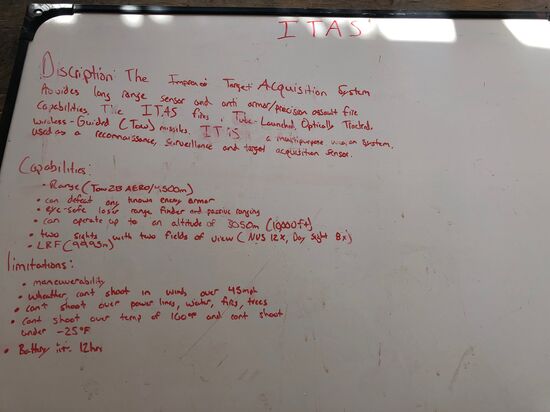 ITAS
Discription: The Improved Target Acquisition System
Provides long range sensor and anti armor/precision assault fire
Capabilities. The ITAS fires, Tube-Launched, Optically Tracked,
wireless-Guided (Tow) missiles. ITAS is a multipurpose weapon system.
used as a reconnaissance, surveillance and target acquisition sensor.
Capabilities:
• Range (Tow 2B AERO/4,500m)
• can defeat any known enemy armor
• eye-safe laser range finder and passive ranging
• can operate up to an altitude of 3050m (10,000ft)
• two sights with two fields of view (NVS 12x, Day sight 8x)
• LRF (9995m)
limitations:
• maneuverability
• Wheather, cant shoot in winds over 45mph
• Cant shoot over power lines, water, fires, trees
• Cant shoot over temp of 100° and cant shoot
under -25°F
• Battery life 12hrs